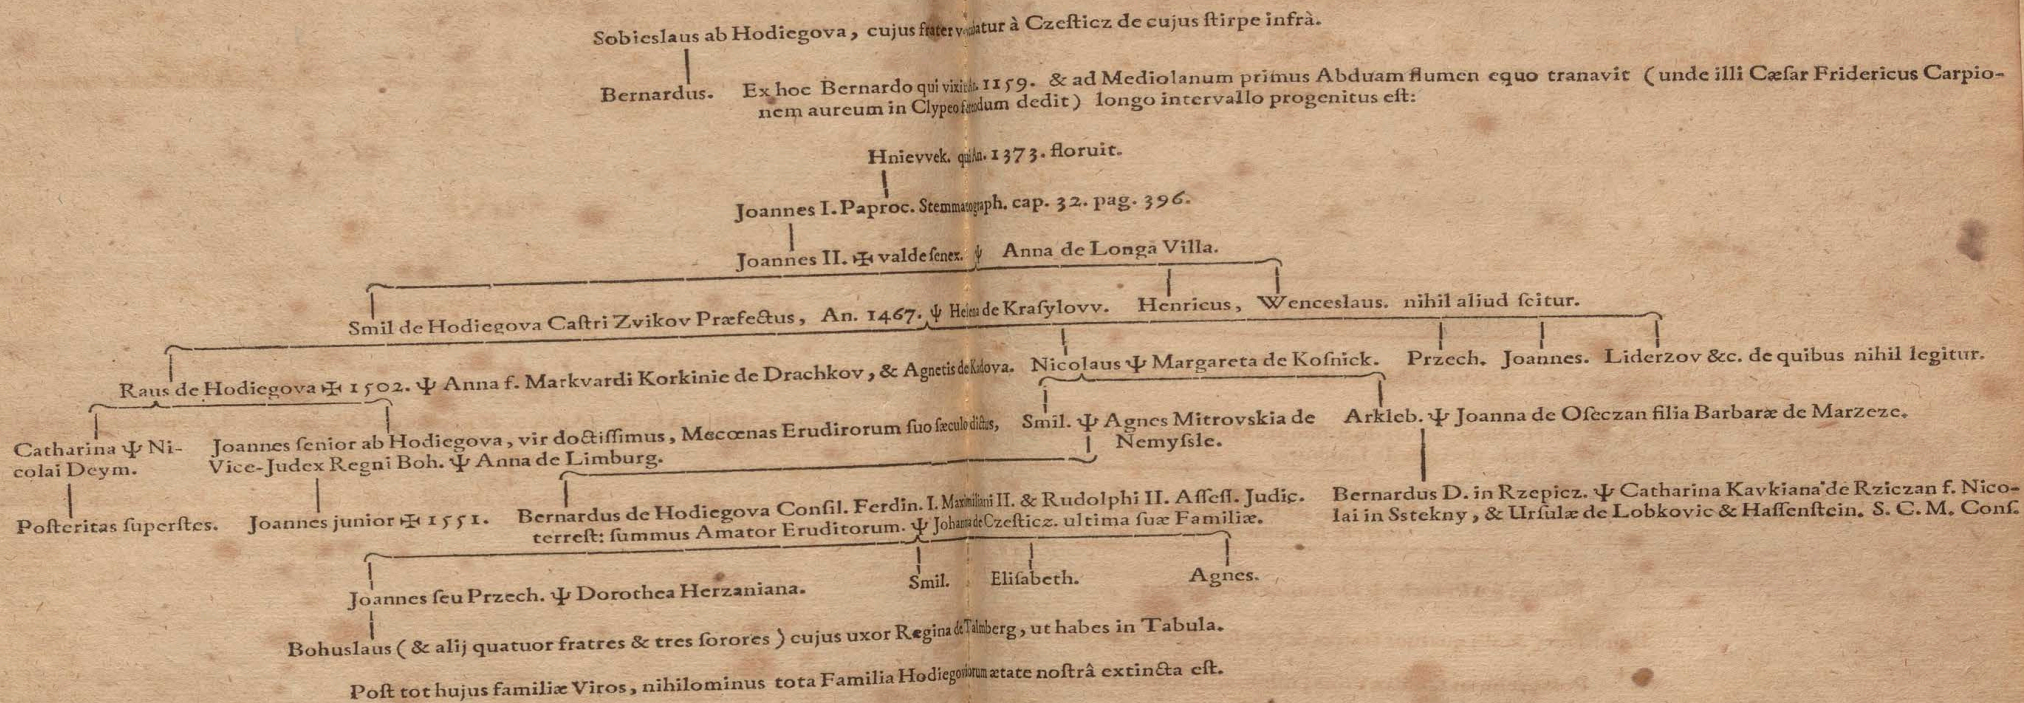 Sobieslaus ab Hodiegova, cujus frater vocatur à Czesticz de cujus stirpe infrà.
Bernardus. Ex hoc Bernardo qui vixit An. 1159. & ad Mediolanum primus Abduam flumen equo tranavit (unde illi Cæsar Fridericus Carpio-
nem aureum in Clypeo dedit) longo intervallo progenitus est:
Hnievvek. qui An. 1373. floruit.
Joannes I. Paproc. Stemmatograph. cap. 32. pag. 396.
Joannes II. ✠ valde senex. Ψ Anna de Longa Villa.
Smil de Hodiegova Castri Zvikov Præfectus, An. 1467. Ψ Helena de Krasylovv. Henricus, Wenceslaus. nihil aliud scitur.
Raus de Hodiegova ✠ 1502. Ψ Anna f. Markvardi Korkinie de Drachkov, & Agnetis de Kadova. Nicolaus Ψ Margareta de Kosnick. Przech. Joannes. Liderzov &c. de quibus nihil legitur.
Catharina Ψ Ni-
colai Deym.
Joannes senior ab Hodiegova, vir doctissimus, Mecœnas Erudirorum suo sæculo dictus,
Vice-Judex Regni Boh. Ψ Anna de Limburg.
Smil. Ψ Agnes Mitrovskia de
Nemyssle.
Arkleb. Ψ Joanna de Oseczan filia Barbaræ de Marzeze.
Posteritas superstes. Joannes junior ✠ 1551.
Bernardus de Hodiegova Consil. Ferdin. I. Maximiliani II. & Rudolphi II. Assess. Judic.
terrest: summus Amator Eruditorum. Ψ Johanna de Czesticz. ultima suæ Familiæ.
Bernardus D. in Rzepicz. Ψ Catharina Kavkiana de Rziczan f. Nico-
lai in Sstekny, & Ursulæ de Lobkovic & Hassenstein. S. C. M. Cons.
Joannes seu Przech. Ψ Dorothea Herzaniana. Smil. Elisabeth. Agnes.
Bohuslaus (& alij quatuor fratres & tres sorores) cujus uxor Regina de Talmberg, ut habes in Tabula.
Post tot hujus familiæ Viros, nihilominus tota Familia Hodiegoviorum ætate nostrâ extincta est.